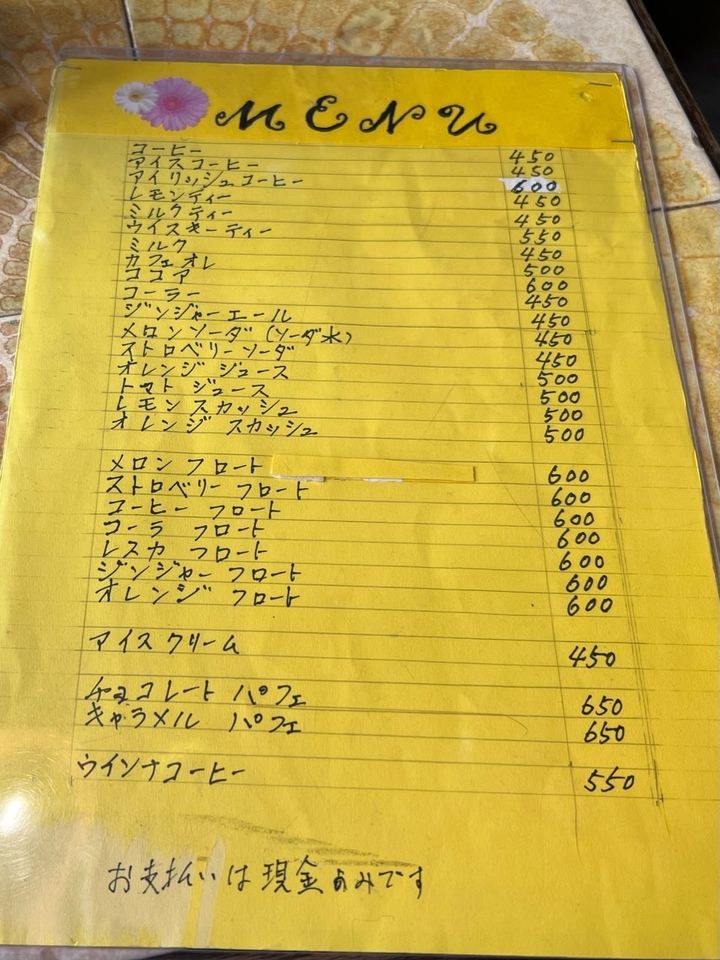 MENU
コーヒー 450
アイスコーヒー 450
アイリッシュコーヒー 600
レモンティー 450
ミルクティー 450
ウイスキーティー 550
ミルク 450
カフェオレ 500
ココア 600
コーラー 450
ジンジャーエール 450
メロンソーダ(ソーダ水) 450
ストロベリーソーダ 450
オレンジ ジュース 500
トマト ジュース 500
レモン スカッシュ 500
オレンジ スカッシュ 500
メロン フロート 600
ストロベリー フロート 600
コーヒー フロート 600
コーラ フロート 600
レスカ フロート 600
ジンジャー フロート 600
オレンジ フロート 600
アイスクリーム 450
チョコレート パフェ 650
キャラメル パフェ 650
ウインナコーヒー 550
お支払いは現金のみです